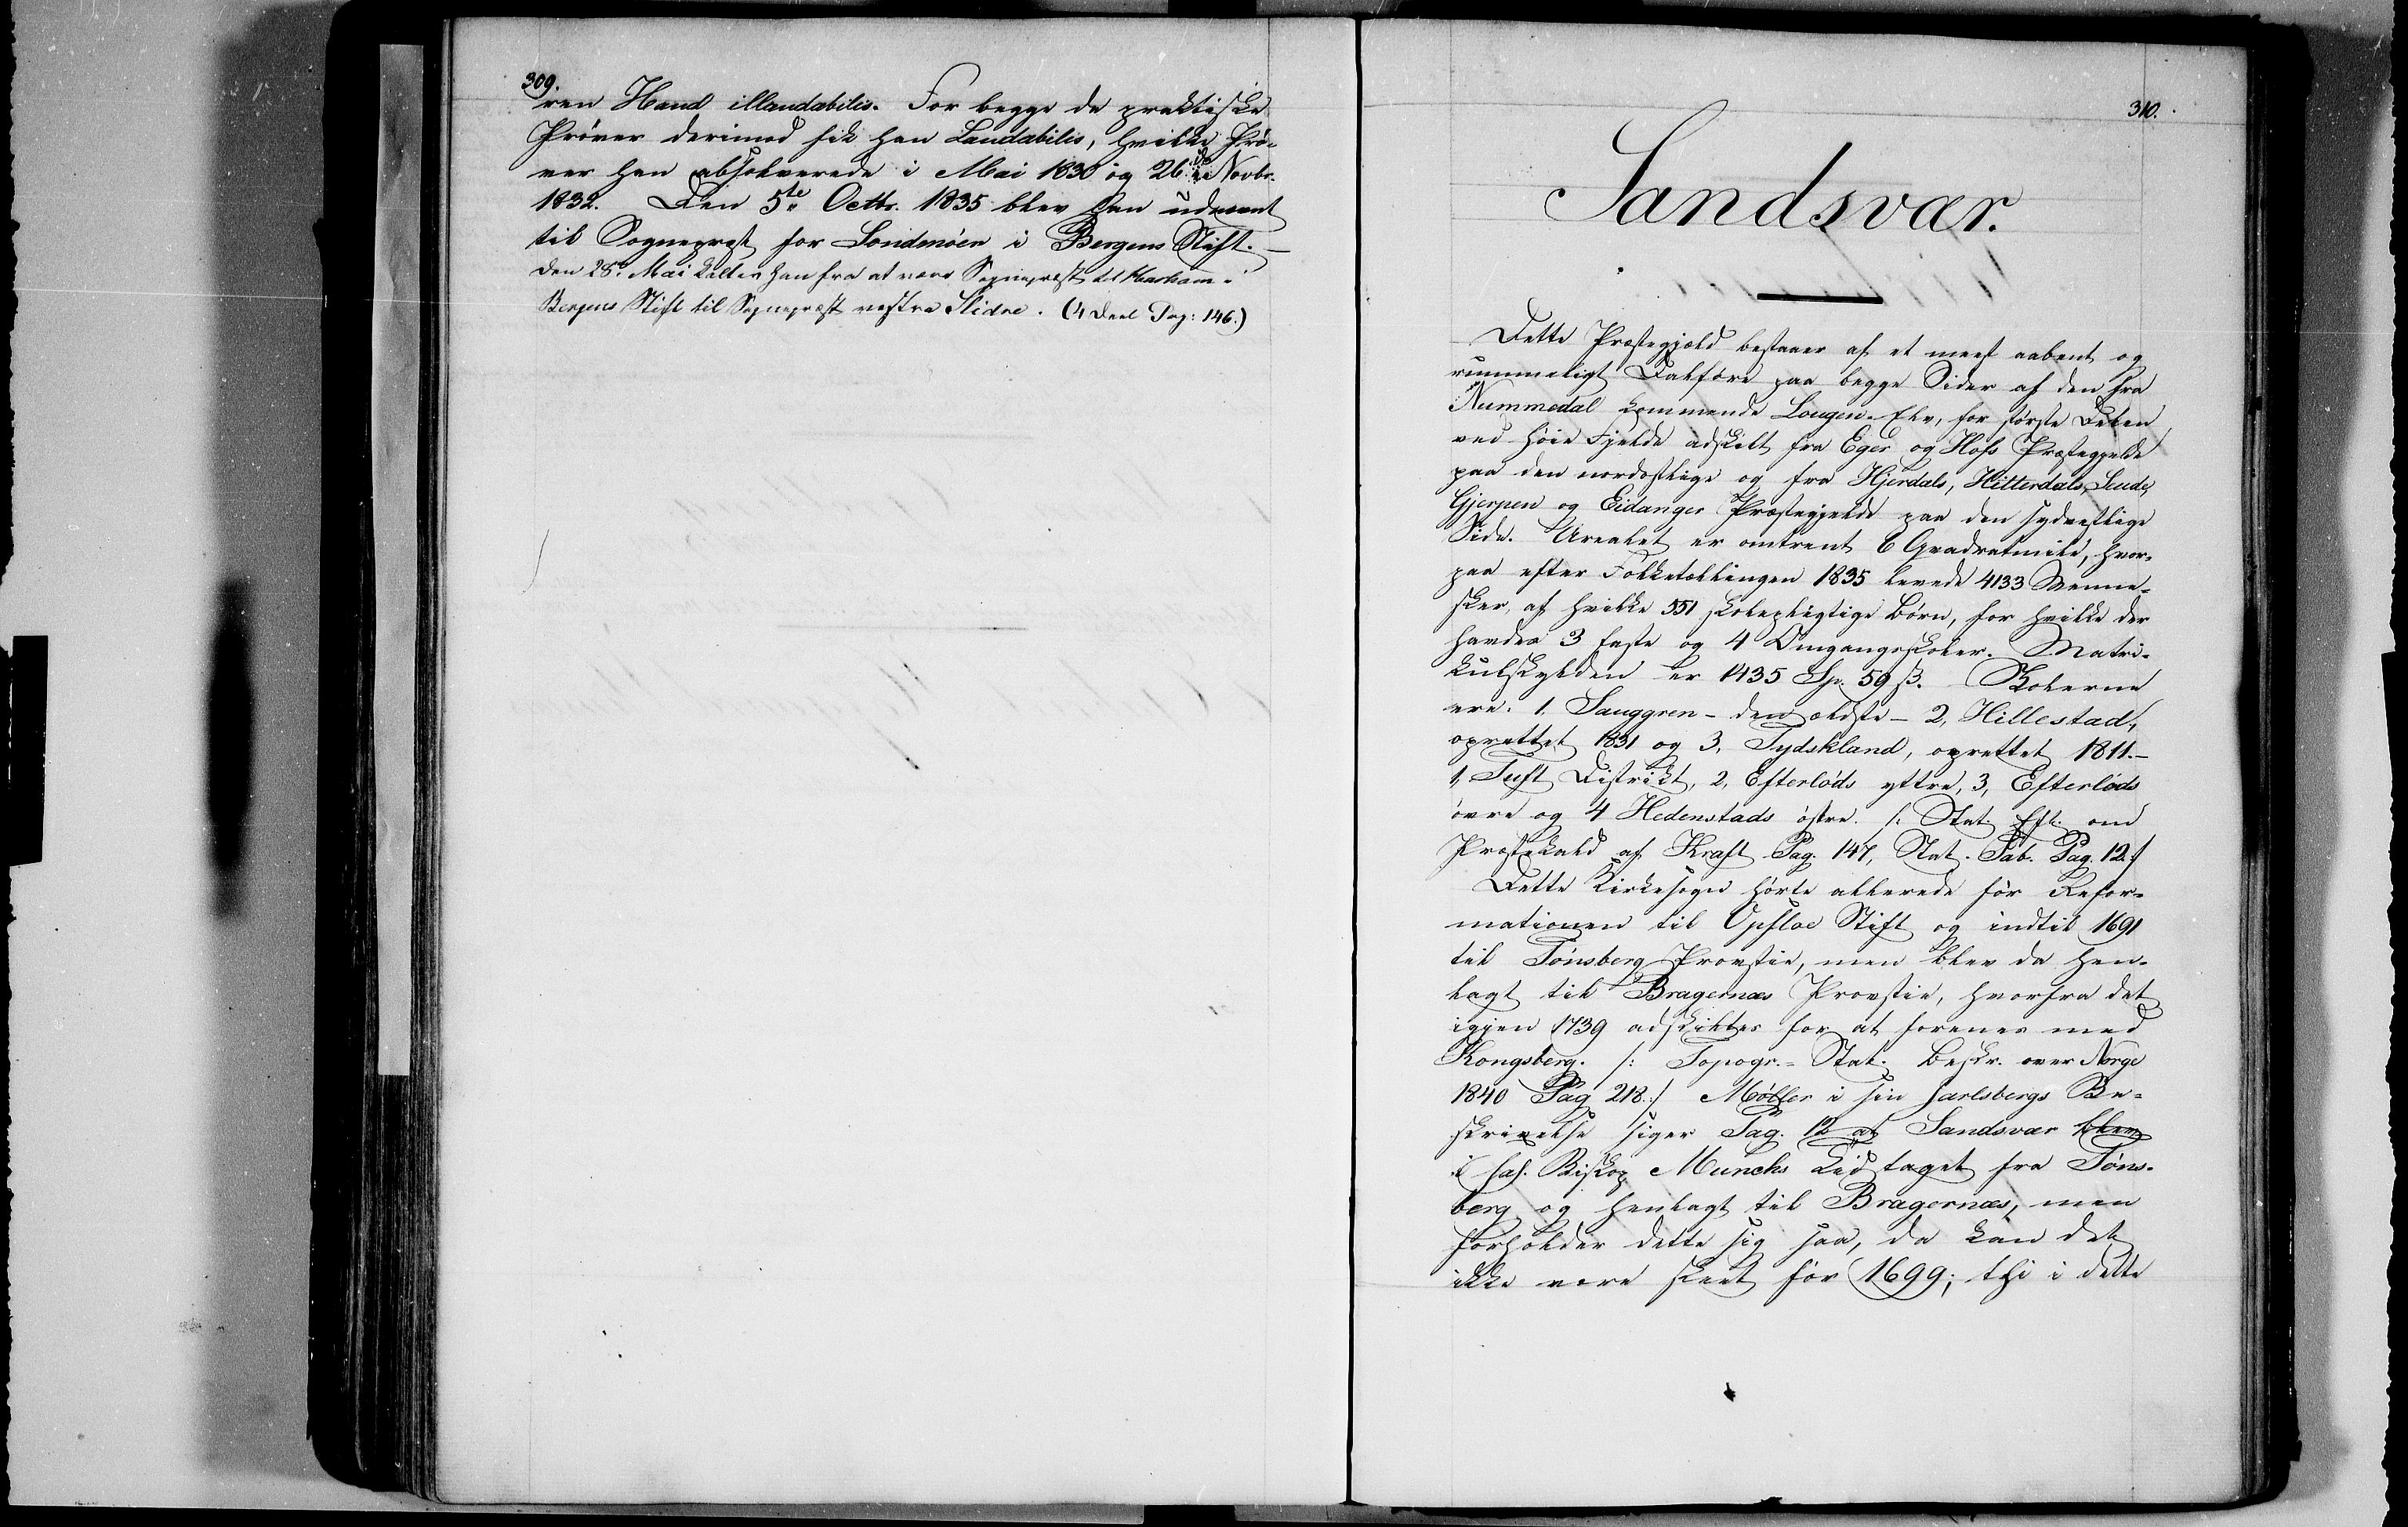 309.
ren Haud illaudabilis. For begge de praktiske
Prøver derimod fik han Laudabilis, hvilke Prø-
ver han absolverede i Mai 1830 og 26de Novbr.
1832. Den 5te Octbr. 1835 blev han udnævnt
til Sognepræst for Søndmøer i Bergens Stift. —
den 28de Mai kaldes han fra at være Sognepræst til Harham i
Bergens Stift til Sognepræst vestre Slidre. (4 Deel Pag: 146.)
310.
Sandsvær.
Dette Præstegjæld bestaaer af et meest aabent og
rummeligt Dalføre paa begge Sider af den fra
Nummedal kommende Lougen-Elv, for største Delen
ved høie Fjelde adskilt fra Eger og Hofs Præstegjelde
paa den nordostlige og fra Hjerdals, Hitterdals, Saude,
Gjerpen og Eidanger Præstegjelde paa den sydvestlige
Side. Arealet er omtrent 6 Qvadratmile, hvor-
paa efter Folketællingen 1835 levede 4133 Menne-
sker, af hvilke 551 skolepligtige Børn, for hvilke der
havdes 3 faste og 4 Omgangsskoler. Matri-
kulskylden er 1435 Sp. 59 ß. Skolerne
ere: 1, Sauggren - den ældste - 2, Hillestad,
oprettet 1831 og 3, Tydskland, oprettet 1811.—
1, Tuft Distrikt, 2, Efterløds yttre, 3, Efterløds
øvre og 4 Hedenstads østre. /: Stat. Eft. om
Præstekald af Kraft Pag. 147, Stat. Tab. Pag. 12:/
Dette Kirkesogn hørte allerede før Refor-
mationen til Opsloe Stift og indtil 1691
til Tønsberg Provstie, men blev da hen-
lagt til Bragernæs Provstie, hvorfra det
igjen 1739 adskiltes for at forenes med
Kongsberg. /: Topogr.- Stat. Beskr. over Norge
1840 Pag 218:/ Møller i sin Jarlsbergs Be-
skrivelse siger Pag. 12 at Sandsvær blev
i Biskop Munchs Tid taget fra Tøns-
berg og henlagt til Bragernæs, men
forholder dette sig saa, da kan det
ikke være skeet før 1699; thi i dette